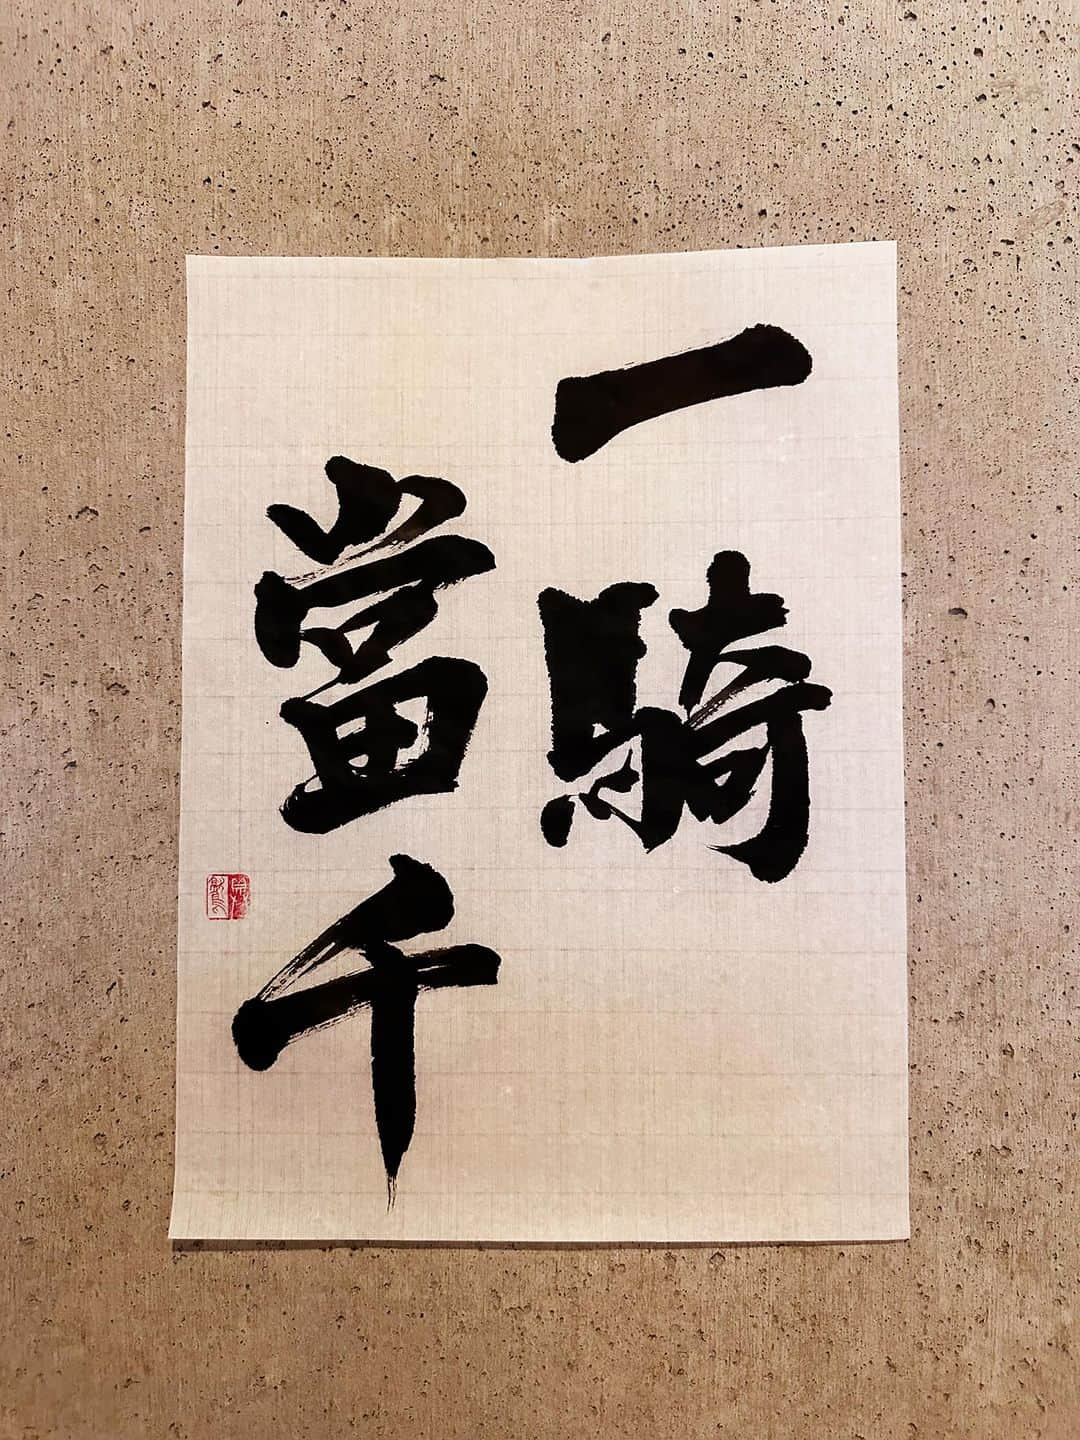 一騎
當千